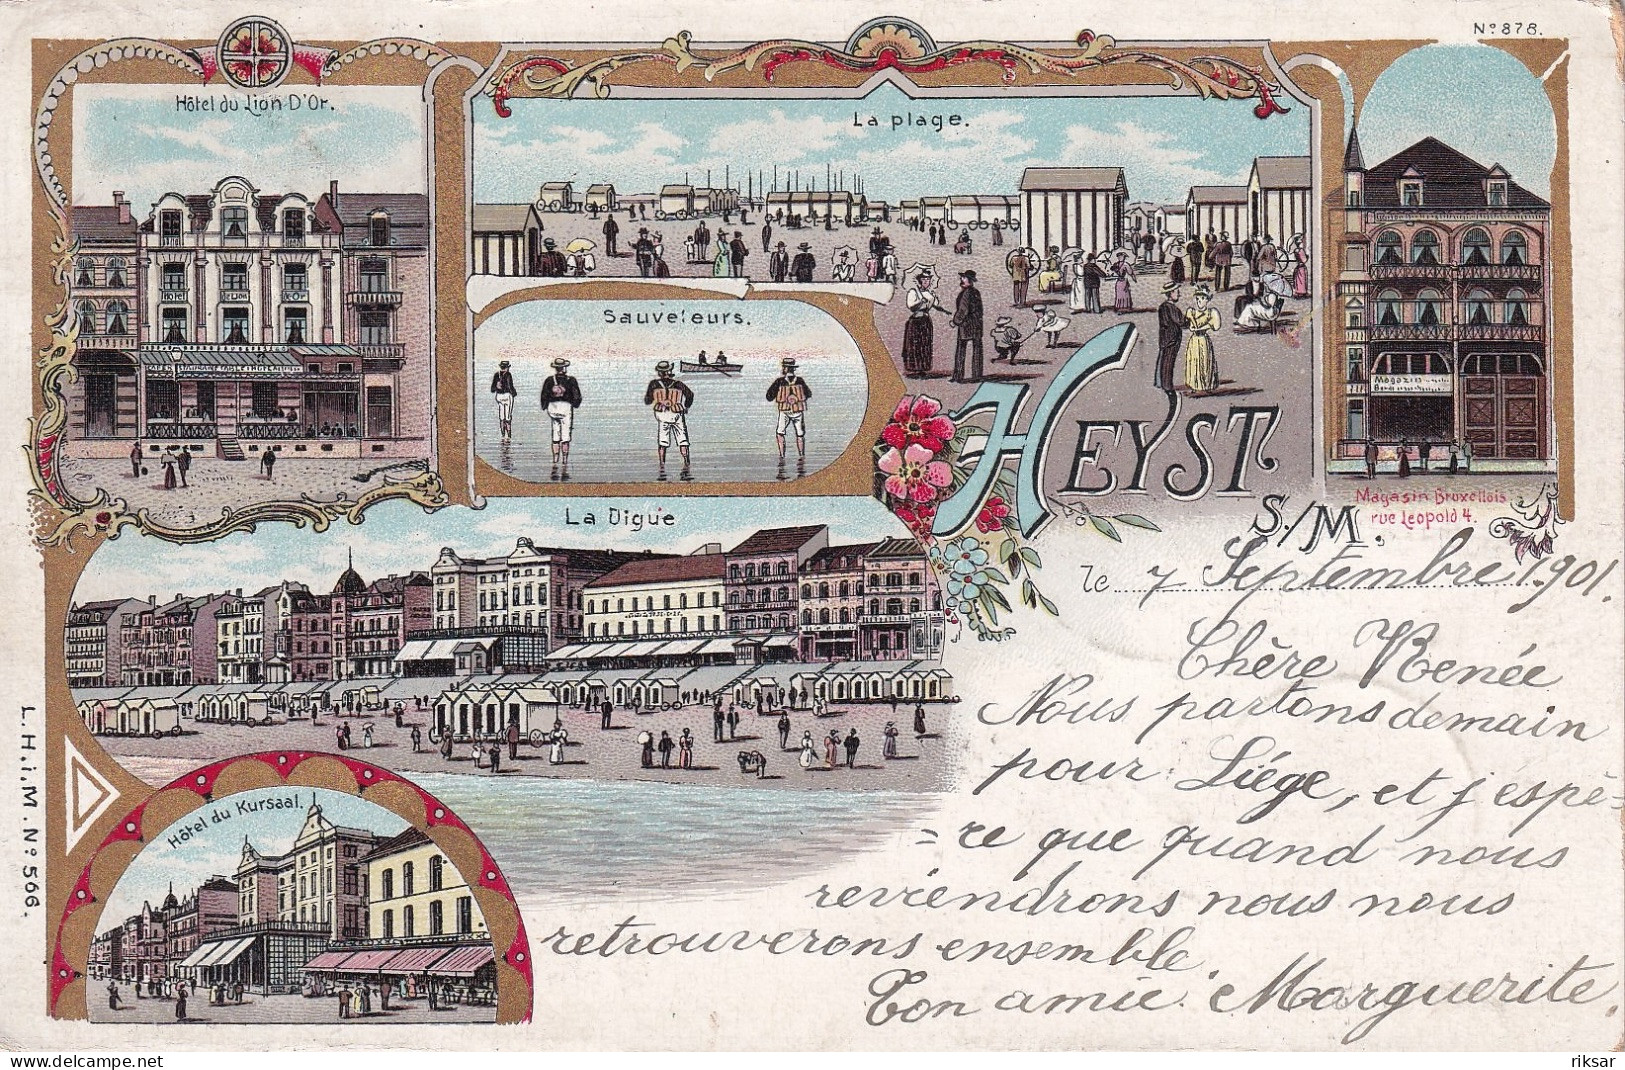 Nº 878.
Hôtel du Lion D'Or.
La plage.
HOTEL
Sauveteurs.
Magazin
HEYST
S./M.
Magasin Bruxellois.
rue Leopold 4.
La Digue
le 7 Septembre 1901.
Chère Renée
Nous partons demain
pour Liége, et j'espè=
=re que quand nous
reviendrons nous nous
retrouverons ensemble.
Ton amie Marguerite.
Hôtel du Kursaal.
L.H.i.M. Nº 566.
riksar
delcampe.net